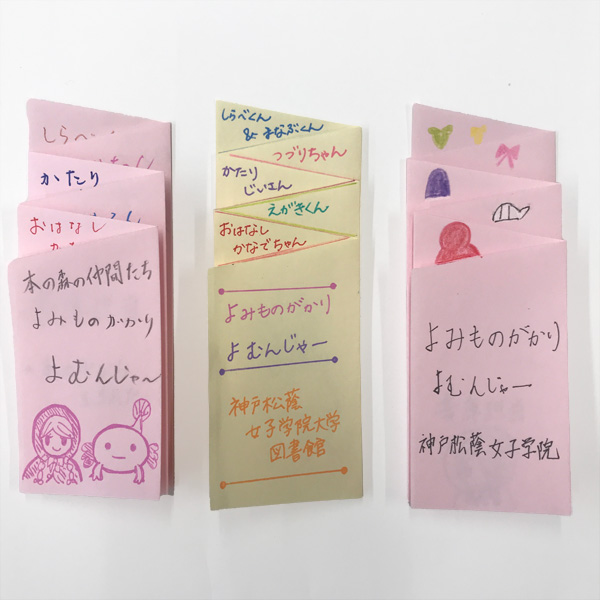 しらべ
かたり
おはなし
本の森の仲間たち
よみものがかり
よむんじゃ〜
しらべくん
& まなぶくん
つづりちゃん
かたり
じいさん
えがきくん
おはなし
かなでちゃん
よみものがかり
よむんじゃー
神戸松蔭
女子学院大学
図書館
よみものがかり
よむんじゃー
神戸松蔭女子学院